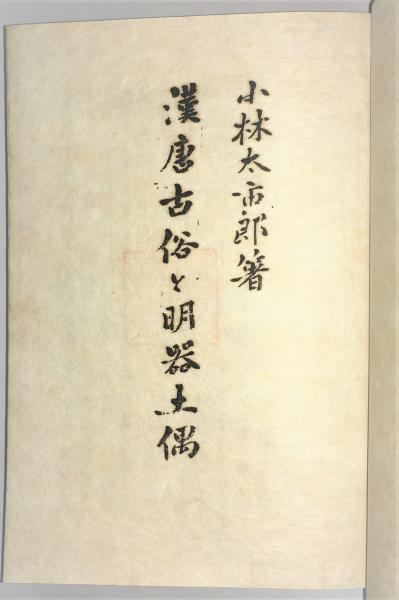 小林太市郎箸
漢唐古俗と明器土偶